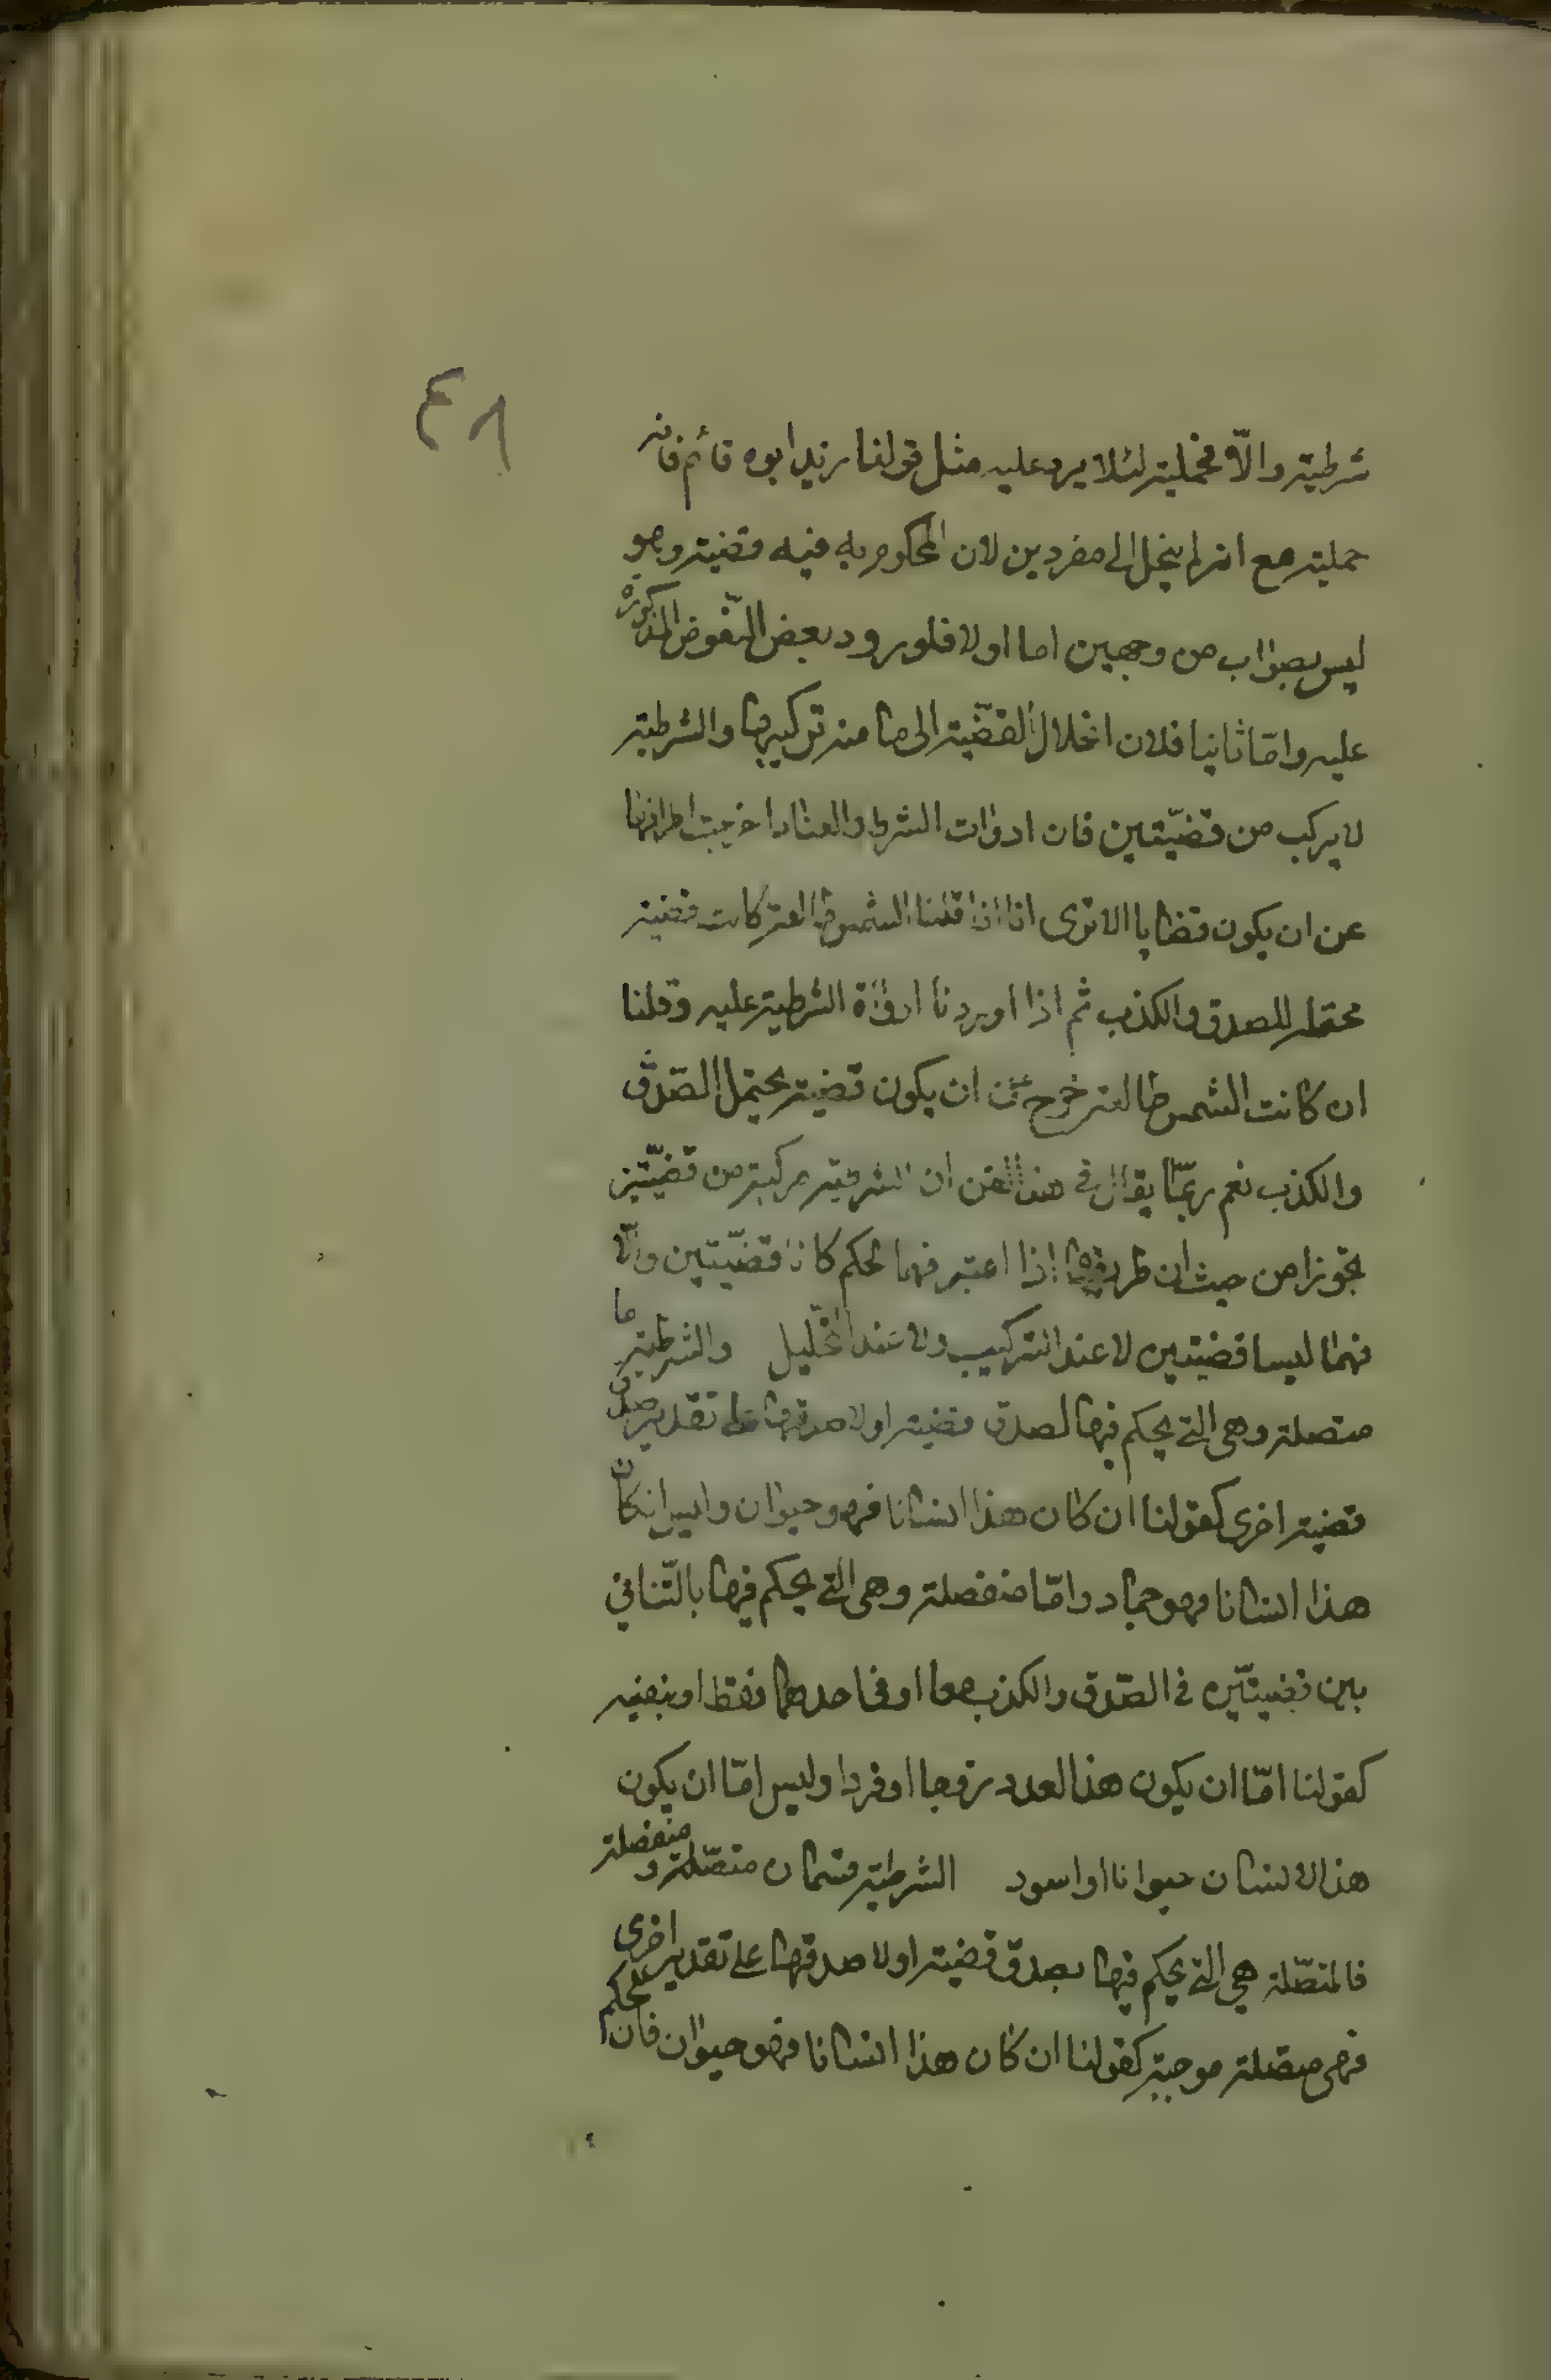 ٤٨
شرطية والّا فحملية لئلا يرد عليه مثل قولنا زيد ابوه قائم فانه
حملية مع انه لم ينحل الى مفردين لان المحكوم به فيه قضية وهو
ليس بصواب من وجهين اما اولا فلورود بعض النّقوض المذكورة
عليه وامّا ثانيا فلان انحلال القضيّة الى ما منه تركيبها والشرطية
لا يركب من قضيّتين فان ادوات الشرط والعناد اخرجت اطرافها
عن ان يكون قضايا الا ترى انا اذا قلنا الشمس طالعة كانت قضية
محتملة للصدق والكذب ثم اذا اوردنا اداة الشرطية عليه وقلنا
ان كانت الشمس طالعة خرج عن ان يكون قضية يحتمل الصّدق
والكذب نعم ربّما يقال في هذا الفن ان الشرطية مركبة من قضيّتين
تجوزا من حيث ان طرفيها اذا اعتبر فيهما الحكم كانا قضيّتين والّا
فهما ليسا قضيتين لا عند التركيب ولا عند التحليل والشرطية اما
متصلة وهي التي يحكم فيها لصدق قضية او لا صدقها على تقدير صدق
قضية اخرى كقولنا ان كان هذا انسانا فهو حيوان وليس ان كان
هذا انسانا فهو جماد وامّا منفصلة وهي التي يحكم فيها بالتّنافي
بين قضيتيّن في الصّدق والكذب معا او في احدهما فقط او بنفيه
كقولنا امّا ان يكون هذا العدد زوجا او فردا وليس امّا ان يكون
هذا الانسان حيوانا او اسود الشرطية قسمان متصّلة و منفصلة
فالمتصّلة هي التي يحكم فيها بصدق قضية او لا صدقها على تقدير اخرى
فهي متصلة موجبة كقولنا ان كان هذا انسانا فهو حيوان فان الحكم